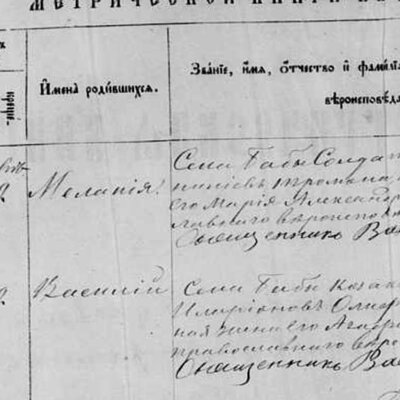 МЕТРИЧЕСКОЙ КНИГИ
Имена родившихся.
Званіе, имя, отчество и фамилі
вѣроисповѣда
крещен.
Меланія.
Села Бабы Солда
его Марія Александр
лавнаго вѣроиспо
Священникъ Ва
Василій
Села Бабы козак
Иларіоновъ
ная жена его Агаф
православнаго вѣро
Священникъ Вас